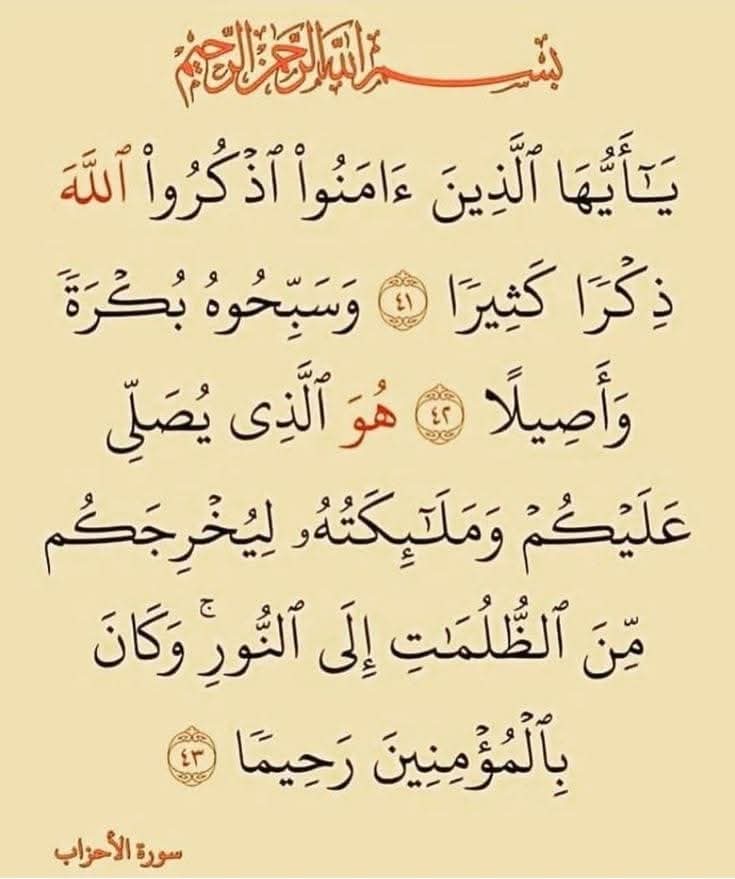 بسم الله الرحمن الرحيم
يَـٰٓأَيُّهَا ٱلَّذِينَ ءَامَنُوا۟ ٱذْكُرُوا۟ ٱللَّهَ
ذِكْرًا كَثِيرًا ٤١ وَسَبِّحُوهُ بُكْرَةً
وَأَصِيلًا ٤٢ هُوَ ٱلَّذِى يُصَلِّى
عَلَيْكُمْ وَمَلَـٰٓئِكَتُهُۥ لِيُخْرِجَكُم
مِّنَ ٱلظُّلُمَـٰتِ إِلَى ٱلنُّورِ ۚ وَكَانَ
بِٱلْمُؤْمِنِينَ رَحِيمًا ٤٣
سورة الأحزاب